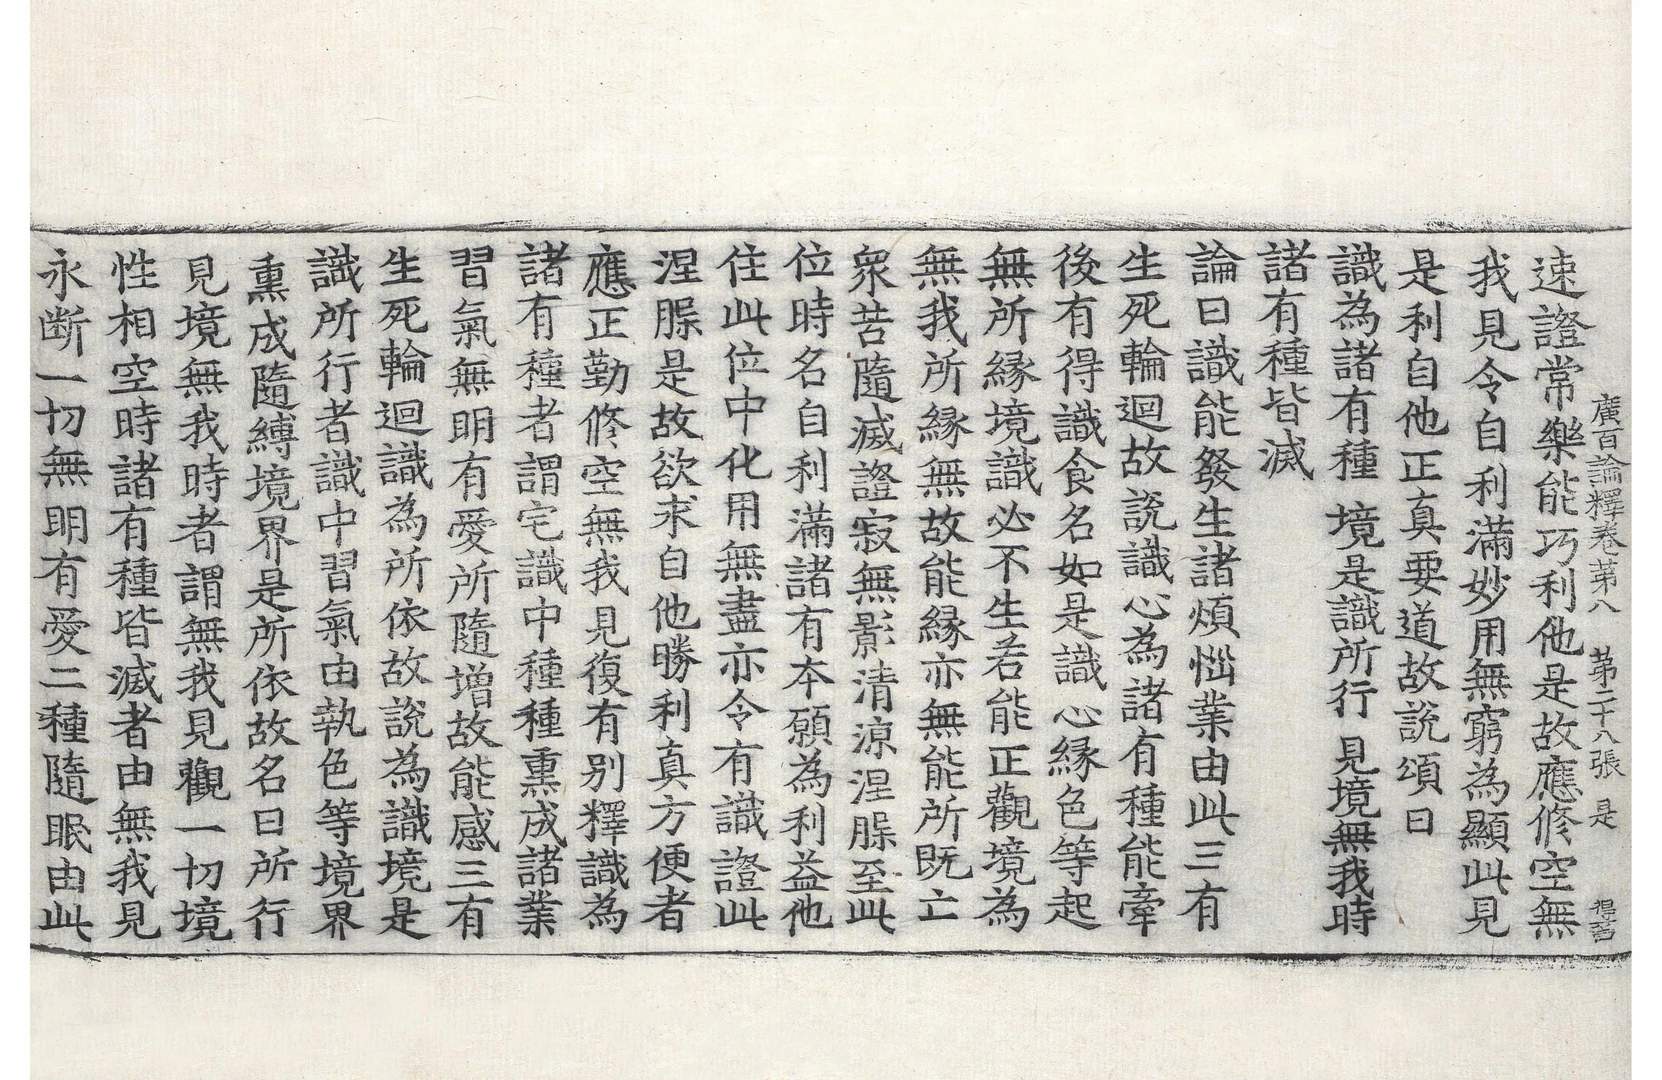 廣百論釋卷第八 第二十八張 是
速證常樂能巧利他是故應修空無
我見令自利滿妙用無窮為顯此見
是利自他正真要道故說頌曰
識為諸有種 境是識所行 見境無我時
諸有種皆滅
論曰識能發生諸煩惱業由此三有
生死輪迴故說識心為諸有種能牽
後有得識食名如是識心緣色等起
無所緣境識必不生若能正觀境為
無我所緣無故能緣亦無能所既亡
衆苦隨滅證寂無影清涼涅槃至此
位時名自利滿諸有本願為利益他
住此位中化用無盡亦令有識證此
涅槃是故欲求自他勝利真方便者
應正勤修空無我見復有別釋識為
諸有種者謂宅識中種種熏成諸業
習氣無明有愛所隨增故能感三有
生死輪迴識為所依故說為識境是
識所行者識中習氣由執色等境界
熏成隨縛境界是所依故名曰所行
見境無我時者謂無我見觀一切境
性相空時諸有種皆滅者由無我見
永断一切無明有愛二種隨眠由此